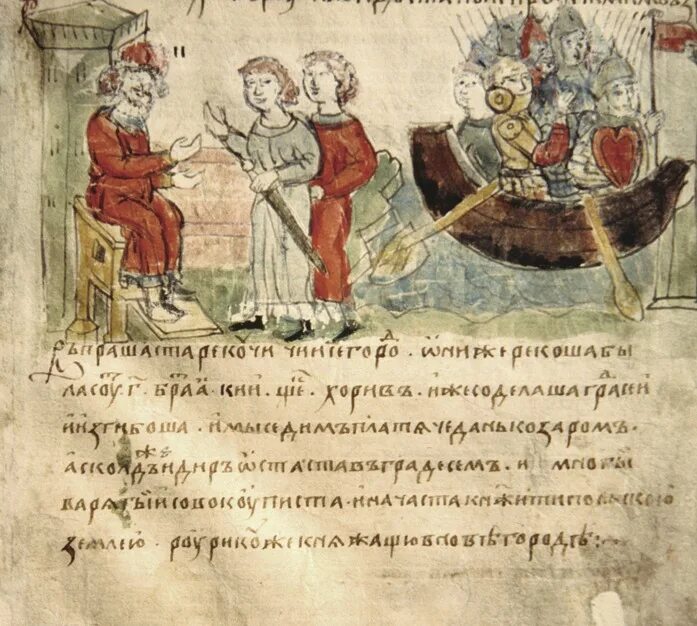 въпрашаста рекочи чиисегороⷣ · ѿнижерекошабы
ласоуⷮ · г҃ · браⷮа · кии · щеⷦ · хоривъ · ижесоделашаграⷣсеи
иизгибоша · имыседимъплатѧчеданькозаромъ ·
асколдъⷤеидиръѿстаставъградесемъ · и многы
варѧгыисовокоуписта · иначастакнѧжитипольскою
землею · роурикоужекнѧжащювновѣгородѣ :